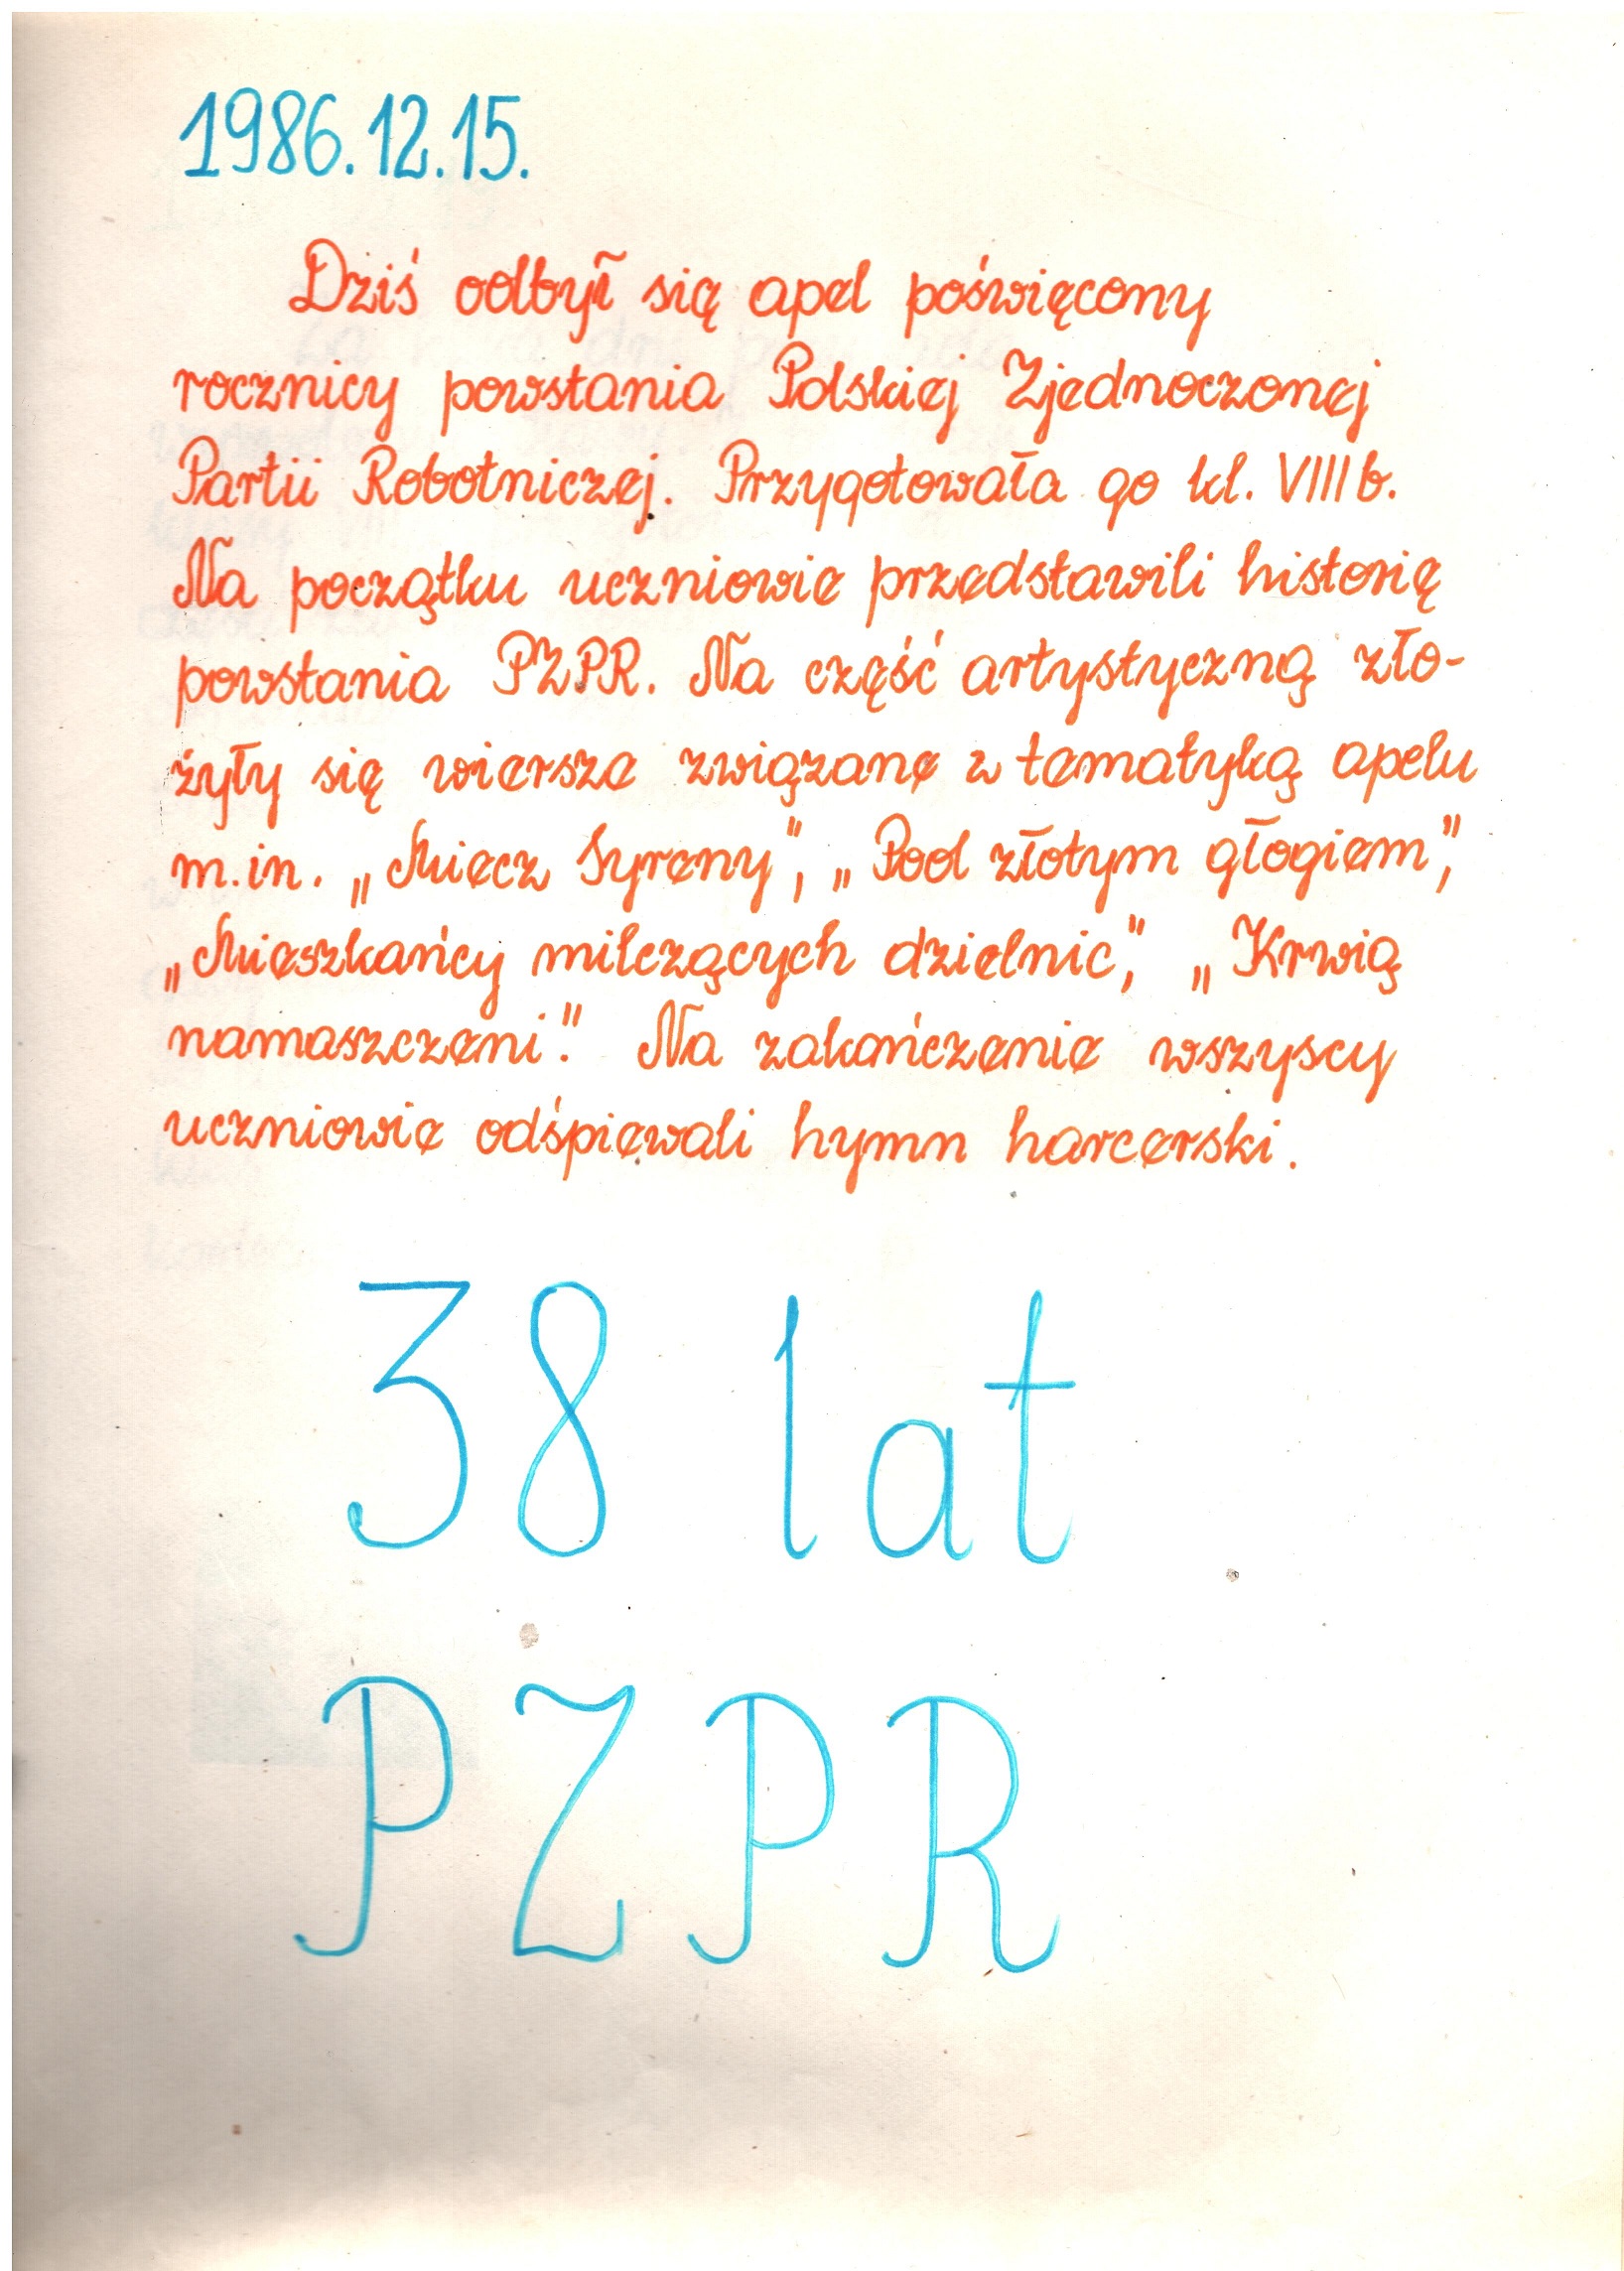 1986.12.15.
Dziś odbył się apel poświęcony
rocznicy powstania Polskiej Zjednoczonej
Partii Robotniczej. Przygotowała go kl. VIII b.
Na początku uczniowie przedstawili historię
powstania PZPR. Na część artystyczną zło-
żyły się wiersze związane z tematyką apelu
m.in. „Miecz Syreny", „Pod złotym głogiem",
„Mieszkańcy milczących dzielnic", „Krwią
namaszczeni". Na zakończenie wszyscy
uczniowie odśpiewali hymn harcerski.
38 lat
PZPR